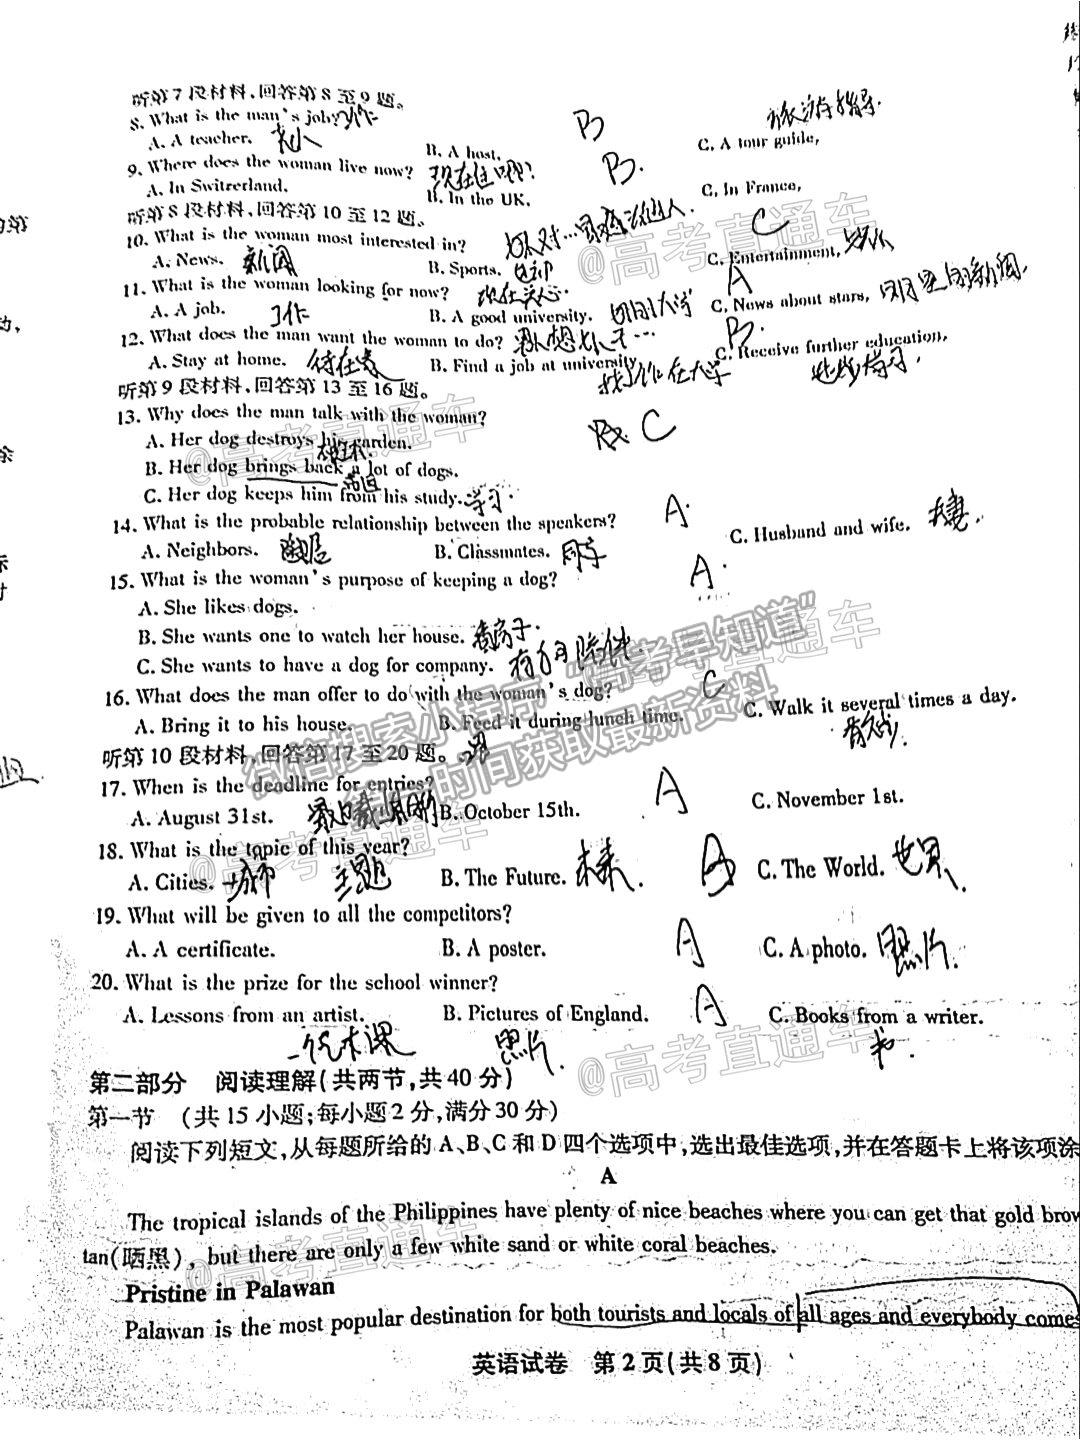 听第7段材料,回答第8至9题。
8. What is the man's job? 工作
A. A teacher.
B. A host.
C. A tour guide,
旅游指导.
B
9. Where does the woman live now? 现在住哪?
B.
A. In Switzerland.
B. In the UK.
C. In France,
听第8段材料,回答第10至12题。
10. What is the woman most interested in?
C
A. News. 新闻
B. Sports. 运动
C. Entertainment,
11. What is the woman looking for now? 现在关心.
A
A. A job. 工作
B. A good university.
C. News about stars,
12. What does the man want the woman to do?
B.
A. Stay at home. 待在家
B. Find a job at university.
找工作在大学
C. Receive further education,
听第9段材料,回答第13至16题。
13. Why does the man talk with the woman?
C
A. Her dog destroys his garden.
B. Her dog brings back a lot of dogs.
带回
C. Her dog keeps him from his study. 学习.
14. What is the probable relationship between the speakers?
A.
A. Neighbors. 邻居
B. Classmates. 同学
C. Husband and wife. 夫妻.
15. What is the woman's purpose of keeping a dog?
A.
A. She likes dogs.
B. She wants one to watch her house. 看房子.
C. She wants to have a dog for company.
16. What does the man offer to do with the woman's dog?
C
A. Bring it to his house.
B. Feed it during lunch time.
C. Walk it several times a day.
听第10段材料,回答第17至20题。
17. When is the deadline for entries?
A
A. August 31st.
B. October 15th.
C. November 1st.
18. What is the topic of this year?
A. Cities. 城市
主题
B. The Future. 未来.
C. The World. 世界.
19. What will be given to all the competitors?
A
A. A certificate.
B. A poster.
C. A photo. 照片.
20. What is the prize for the school winner?
A
A. Lessons from an artist.
B. Pictures of England.
C. Books from a writer.
艺术课
照片.
书.
第二部分 阅读理解(共两节,共40分)
第一节 (共15小题;每小题2分,满分30分)
阅读下列短文,从每题所给的A、B、C和D四个选项中,选出最佳选项,并在答题卡上将该项涂
A
The tropical islands of the Philippines have plenty of nice beaches where you can get that gold brow
tan(晒黑), but there are only a few white sand or white coral beaches.
Pristine in Palawan
Palawan is the most popular destination for both tourists and locals of all ages and everybody comes
英语试卷 第2页(共8页)
@高考直通车
@高考直通车
@高考直通车
@高考直通车
@高考直通车
微信搜索小程序“高考早知道”
第一时间获取最新资料